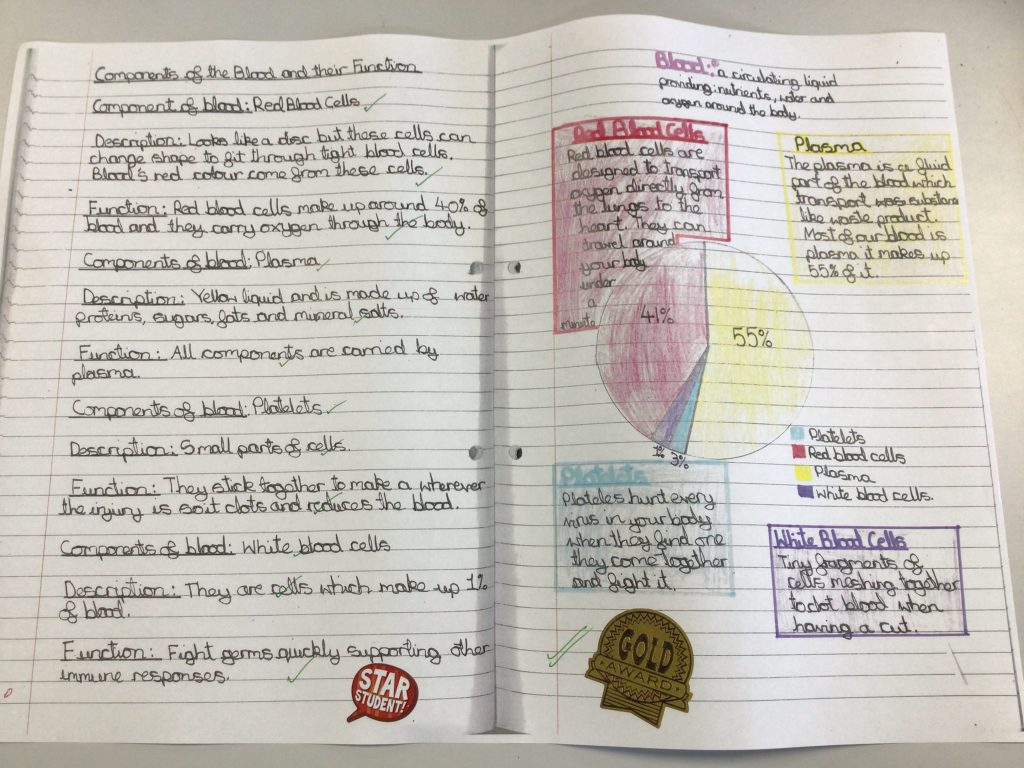 Components of the Blood and their Function
Component of blood: Red Blood Cells
Description: Looks like a disc but these cells can
change shape to fit through tight blood cells.
Blood's red colour come from these cells.
Function: Red blood cells make up around 40% of
blood and they carry oxygen through the body.
Components of blood: Plasma
Description: Yellow liquid and is made up of water
proteins, sugars, fats and mineral salts.
Function: All components are carried by
plasma.
Components of blood: Platelets
Description: Small parts of cells.
Function: They stick together to make a wherever
the injury is so it clots and reduces the blood.
Components of blood: White blood cells
Description: They are cells which make up 1%
of blood.
Function: Fight germs quickly supporting other
immune responses.
STAR
STUDENT!
Blood: a circulating liquid
providing nutrients, water and
oxygen around the body.
Red Blood Cells
Red blood cells are
designed to transport
oxygen directly from
the lungs to the
heart. They can
travel around
your body
under
a
minute
Plasma
The plasma is a fluid
part of the blood which
transport was substane
like waste product.
Most of our blood is
plasma it makes up
55% of it.
41%
55%
1%
3%
Platelets
Red blood cells
Plasma
White blood cells.
Platelets
Plateles hunt every
virus in your body
when they find one
they come together
and fight it.
White Blood Cells
Tiny fragments of
cells meshing together
to clot blood when
having a cut.
GOLD
AWARD